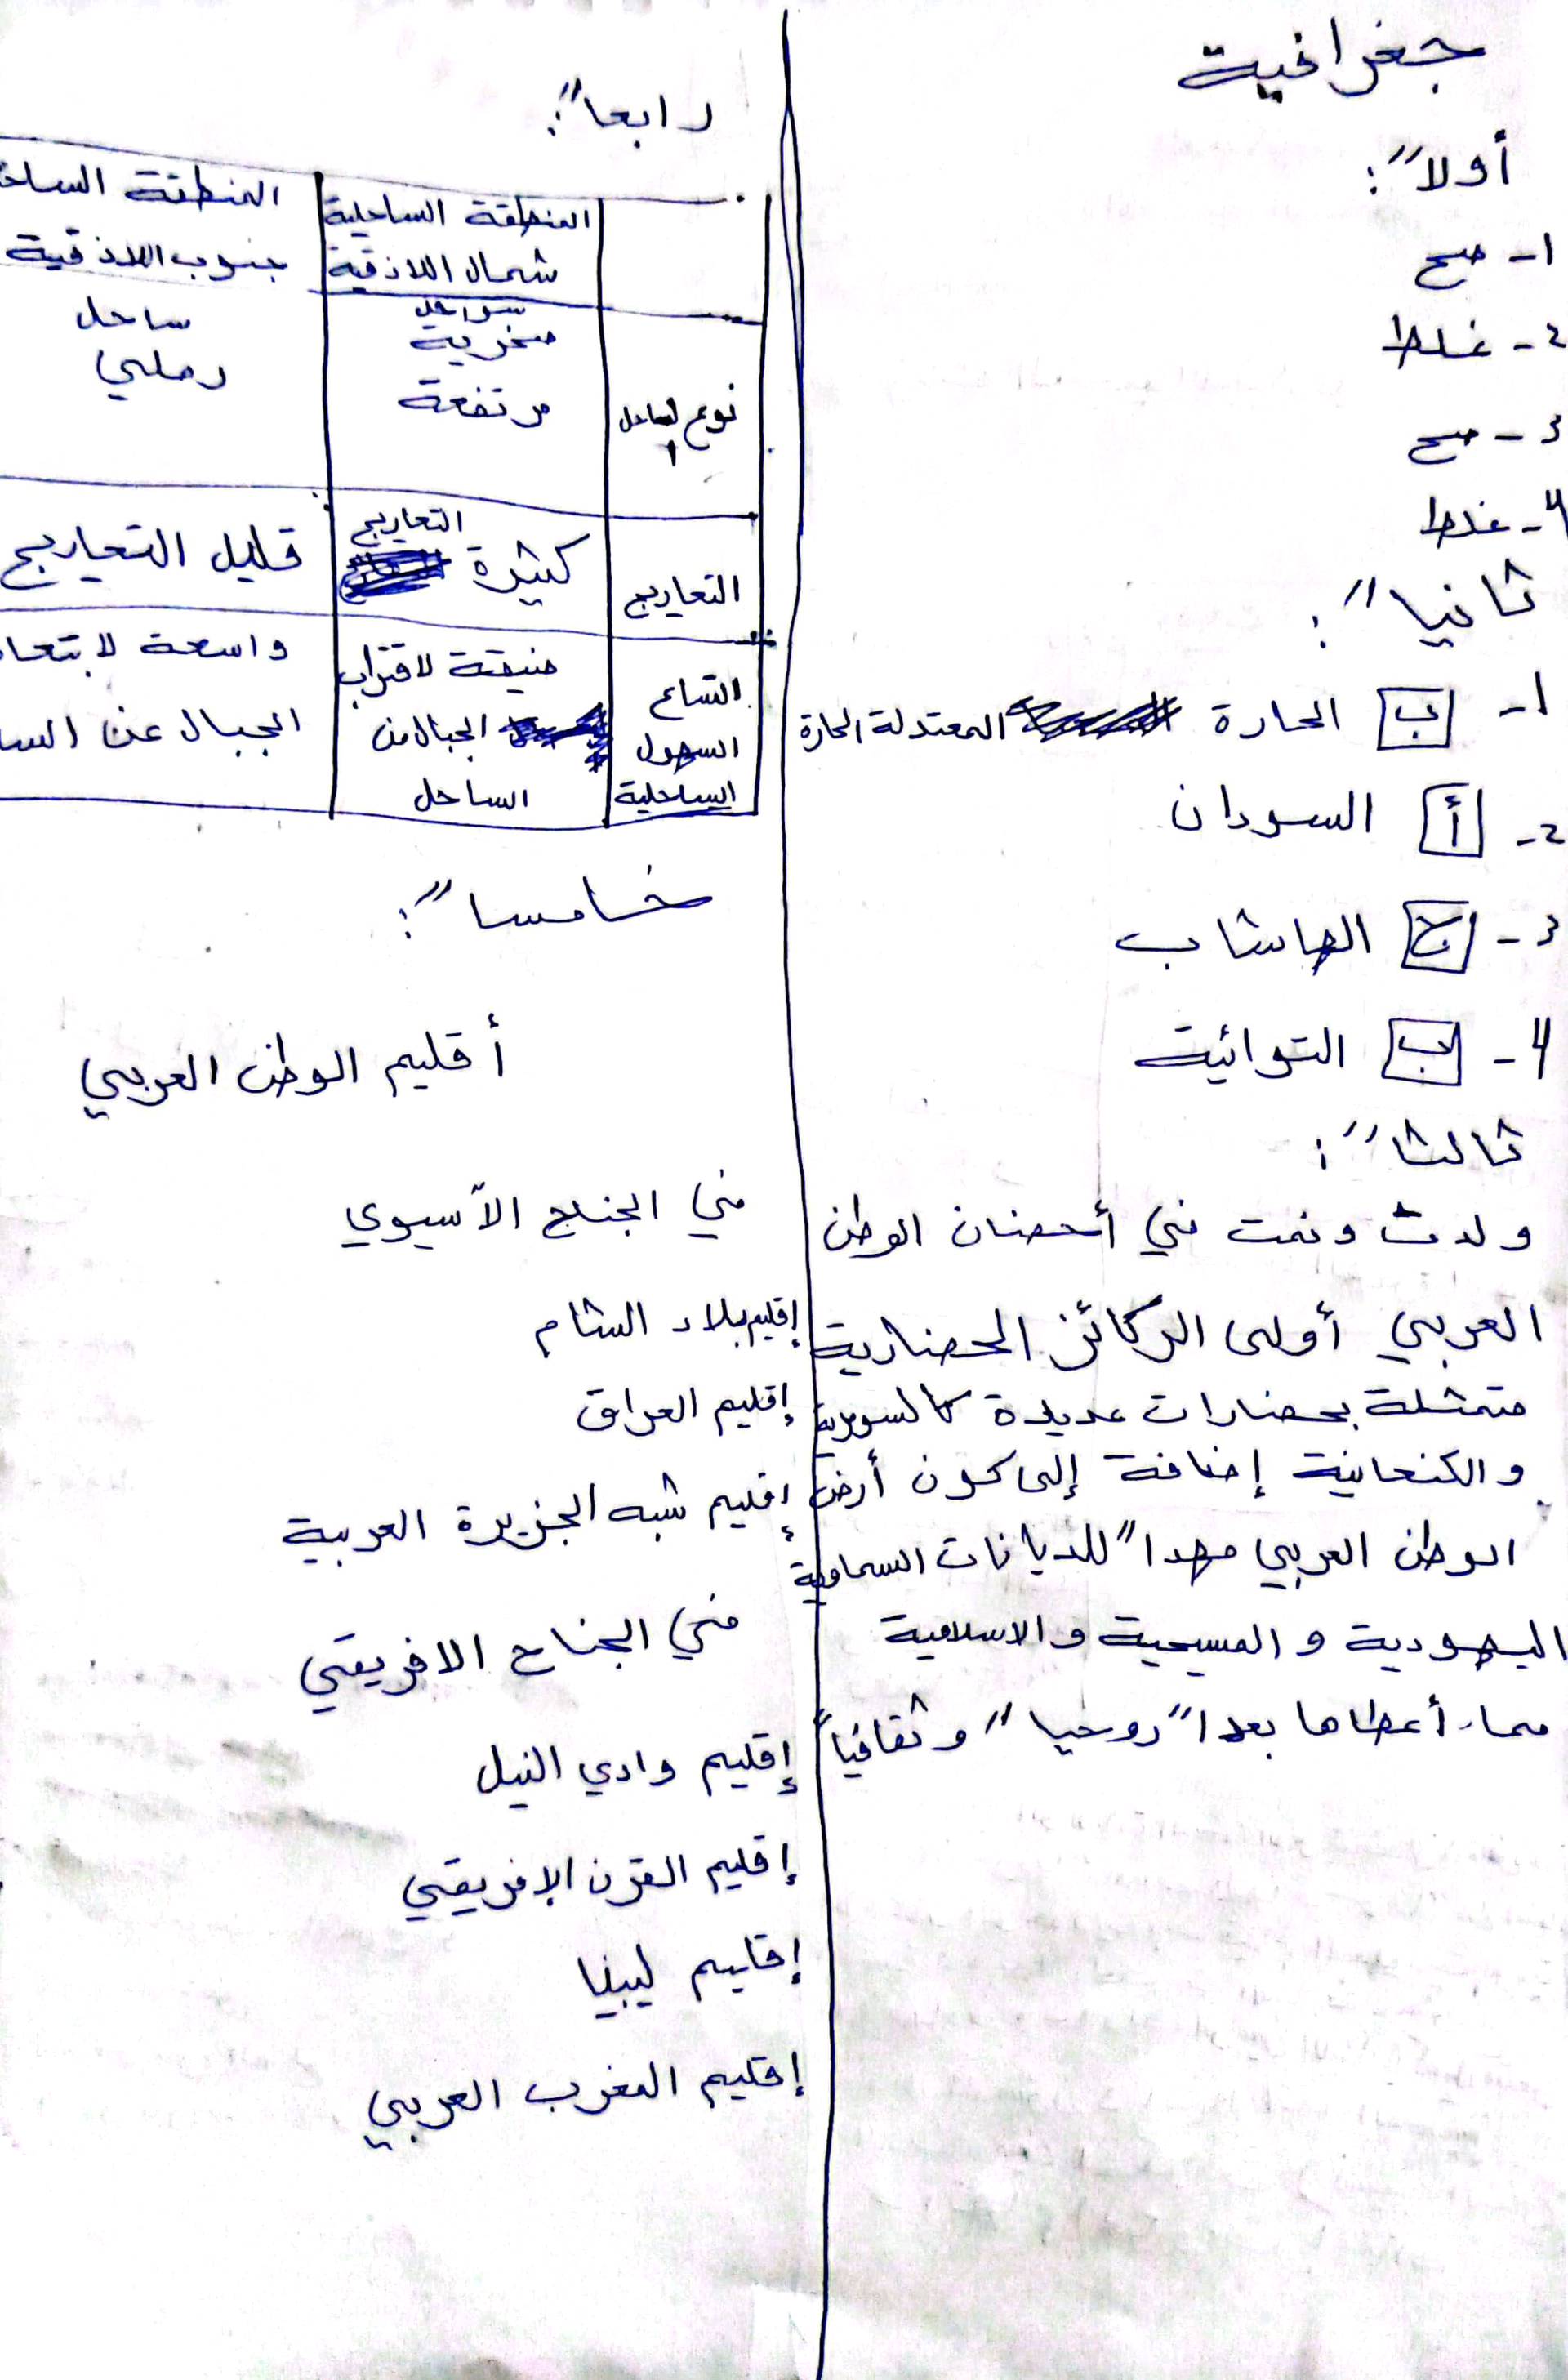 جغرافية
أولا":
١- صح
٢- غلط
٣- صح
٤- غلط
ثانيا":
١- ب الحارة المعتدلة الحارة
٢- أ السودان
٣- ج الهاشاب
٤- ب التوائية
ثالثا":
ولدت ونمت في أحضان الوطن
العربي أولى الركائز الحضارية
متمثلة بحضارات عديدة كالسومرية
والكنعانية إضافة إلى كون أرض
الوطن العربي مهدا" للديانات السماوية
اليهودية و المسيحية و الاسلامية
مما أعطاها بعدا" روحيا" و ثقافياً
رابعا":
المنطقة الساحلية المنطقة الساح
شمال اللاذقية جنوب اللاذقية
نوع الساحل سواحل صخرية مرتفعة ساحل رملي
التعاريج كثيرة التعاريج قليل التعاريج
اتساع السهول الساحلية ضيقة لاقتراب الجبال من الساحل واسعة لابتعا الجبال عن السا
خامسا":
أقليم الوطن العربي
في الجناح الآسيوي
إقليم بلاد الشام
إقليم العراق
إقليم شبه الجزيرة العربية
في الجناح الافريقي
إقليم وادي النيل
إقليم القرن الافريقي
إقليم ليبيا
إقليم المغرب العربي